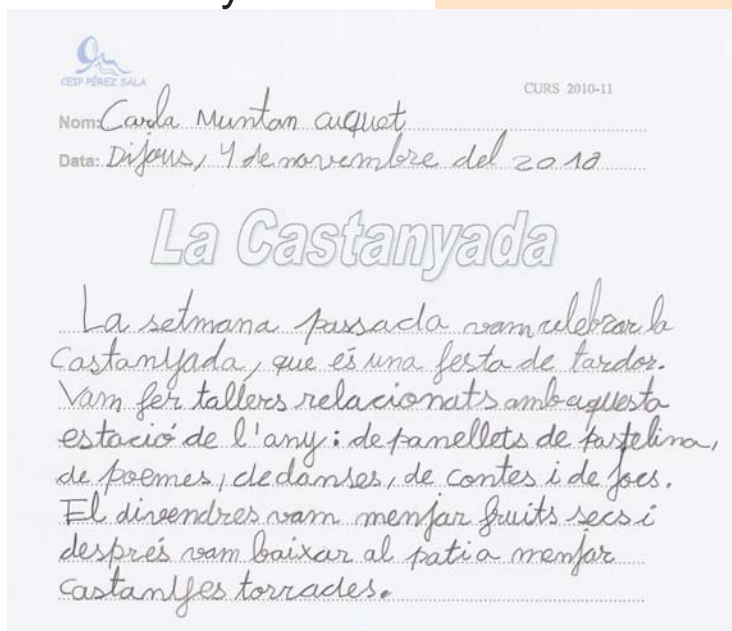 CEIP PÉREZ SALA
CURS 2010-11
Nom: Carla Muntan Cuquet
Data: Dijous, 4 de novembre del 2010
La Castanyada
La setmana passada vam celebrar la
Castanyada, que és una festa de tardor.
Vam fer tallers relacionats amb aquesta
estació de l'any: de panellets de pastelina,
de poemes, de danses, de contes i de jocs.
El divendres vam menjar fruits secs i
després vam baixar al pati a menjar
castanyes torrades.